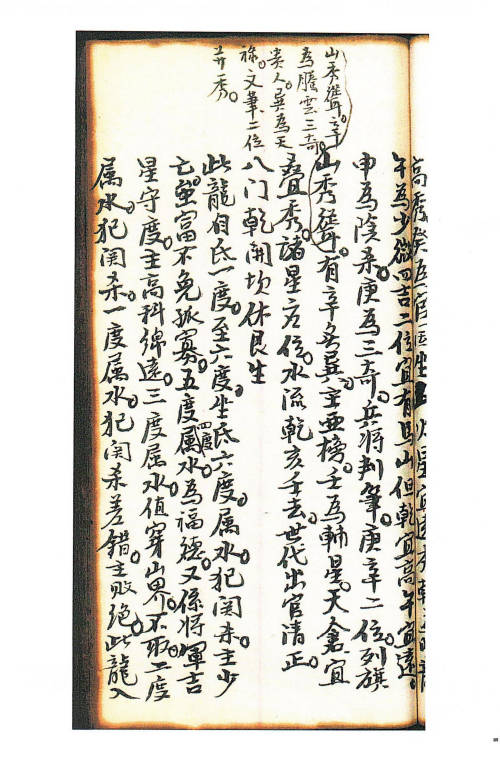 高秀癸為
午為少微四吉二位宜有馬山但乾宜高午宜遠。
申為陰柔。庚為三奇。兵將判筆。庚辛二位。列旗
山秀聳。有辛矣巽。主亞榜。壬為輔星。天倉宜
疊秀。諸星方位。水流乾亥壬去。世代出官清正。
八门乾開坎休艮生
此龍自氐一度。至六度。坐氐六度。属水。犯関杀。主少
亡。蛩富不免孤寡。五度四度属水。為福德。又係將軍吉
星守度。主高科綿遠。三度属水值穿山界。不取。二度
属水犯関杀。一度属水。犯関杀差錯。主敗絕。此龍入
山秀聳。辛
為騰雲三奇
貴人。巽為天
祿。文筆二位
並秀。